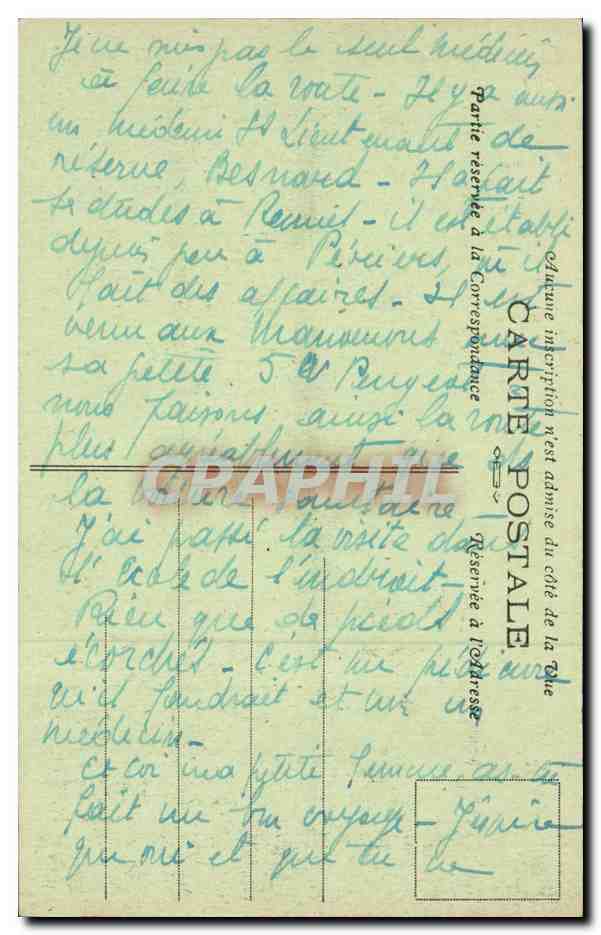 Je ne suis pas le seul médecin
à faire la route - Il y a aussi
un médecin St Lieutenant de
réserve, Besnard - Il a fait
ses études à Rennes - il est établi
depuis peu à Périers, où il
fait des affaires - Il est
venu aux Manœuvres avec
sa petite 5 cv Peugeot et
nous faisons ainsi la route
plus agréablement que de
la voiture sanitaire
J'ai passé la visite dans
l'école de l'endroit -
Rien que de pieds
écorchés - c'est un pédicure
qu'il faudrait et non un
médecin -
Et toi ma petite femme, as tu
fait un bon voyage - J'espère
que oui et que tu ne
Aucune inscription n'est admise du côté de la Vue
CARTE POSTALE
Partie réservée à la Correspondance
Réservée à l'Adresse
CPAPHIL